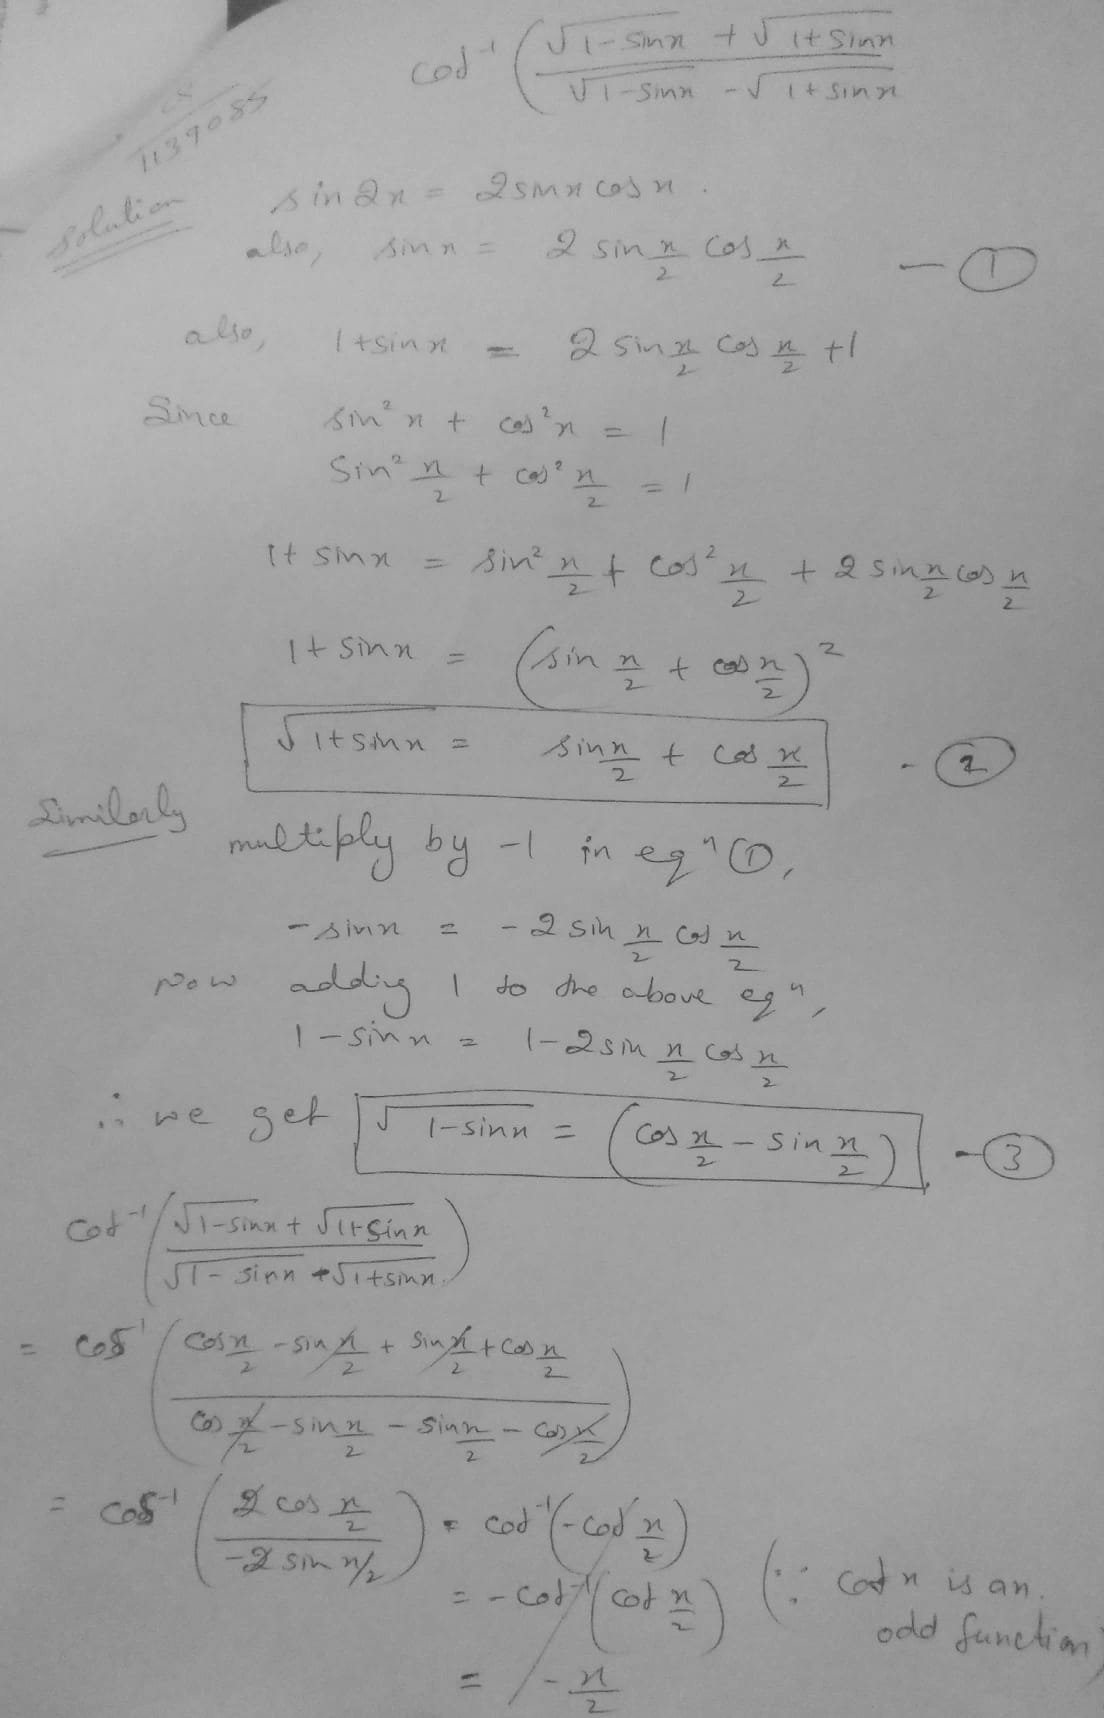 cot⁻¹ (√1-sinx + √1+sinx / √1-sinx - √1+sinx
1139085
solution
sin2x = 2sinx cosx.
also, sinx = 2 sin x/2 cos x/2 - ①
also, 1+sinx = 2 sin x/2 cos x/2 +1
Since sin²x + cos²x = 1
Sin² x/2 + cos² x/2 = 1
1+ sinx = sin² x/2 + cos² x/2 + 2 sin x/2 cos x/2
1+ sinx = (sin x/2 + cos x/2)²
√1+sinx = sin x/2 + cos x/2 - ②
Similarly multiply by -1 in eqⁿ ①,
-sinx = -2 sin x/2 cos x/2
Now adding 1 to the above eqⁿ,
1-sinx = 1-2sin x/2 cos x/2
∴ we get √1-sinx = (cos x/2 - sin x/2) - ③
cot⁻¹ (√1-sinx + √1+sinx / √1-sinx + √1+sinx)
= cot⁻¹ (cos x/2 - sin x/2 + sin x/2 + cos x/2 / cos x/2 - sin x/2 - sin x/2 - cos x/2)
= cot⁻¹ (2 cos x/2 / -2 sin x/2) = cot⁻¹ (-cot x/2)
= -cot⁻¹ (cot x/2) (∵ cot x is an odd function)
= -x/2